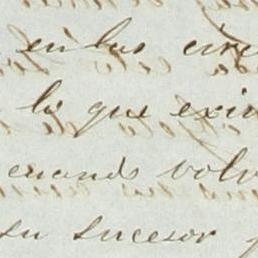 en las circ
lo que exi
cuando volv
su sucesor